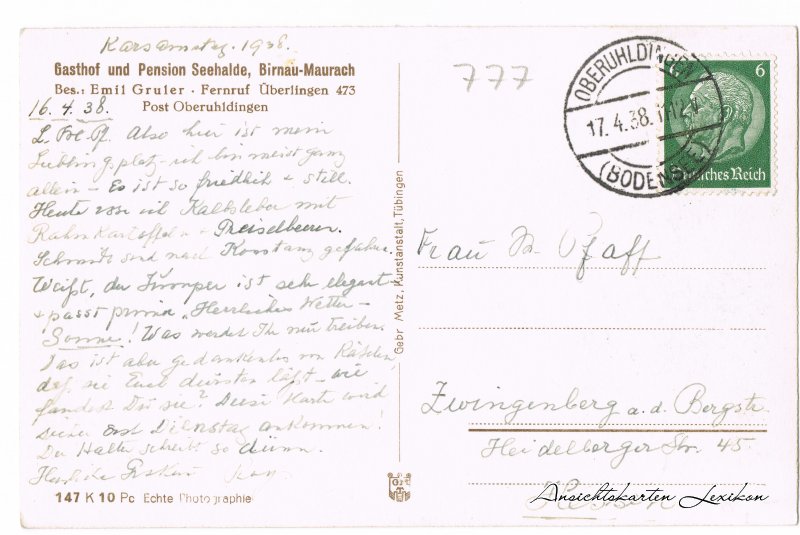 Karsamstag. 1938.
Gasthof und Pension Seehalde, Birnau-Maurach
Bes.: Emil Gruler · Fernruf Überlingen 473
Post Oberuhldingen
16. 4. 38.
Also hier ist mein
Lieblingsplatz – ich bin meist ganz
allein – Es ist so friedlich & still.
Heute esse ich Kalbsleber mit
Rahm Kartoffeln & Preiselbeeren.
sind nach Konstanz gefahren.
Weißt, der Jumper ist sehr elegant
& passt prima. Herrliches Wetter –
Sonne! Was werdet Ihr nur treiben.
Das ist aber gedankenlos von
daß sie Euch dürsten läßt – wie
fandest Du sie? Diese Karte wird
sicher erst Dienstag ankommen!
Der Halter schreibt so dünn.
Herzliche
147 K 10 Pc Echte Photographie
Gebr Metz, Kunstanstalt, Tübingen
777
OBERUHLDINGEN
17. 4. 38.
(BODENSEE)
6
Deutsches Reich
Frau Pfaff
Zwingenberg a. d. Bergstr.
Heidelberger Str. 45
Hessen
Ansichtskarten Lexikon